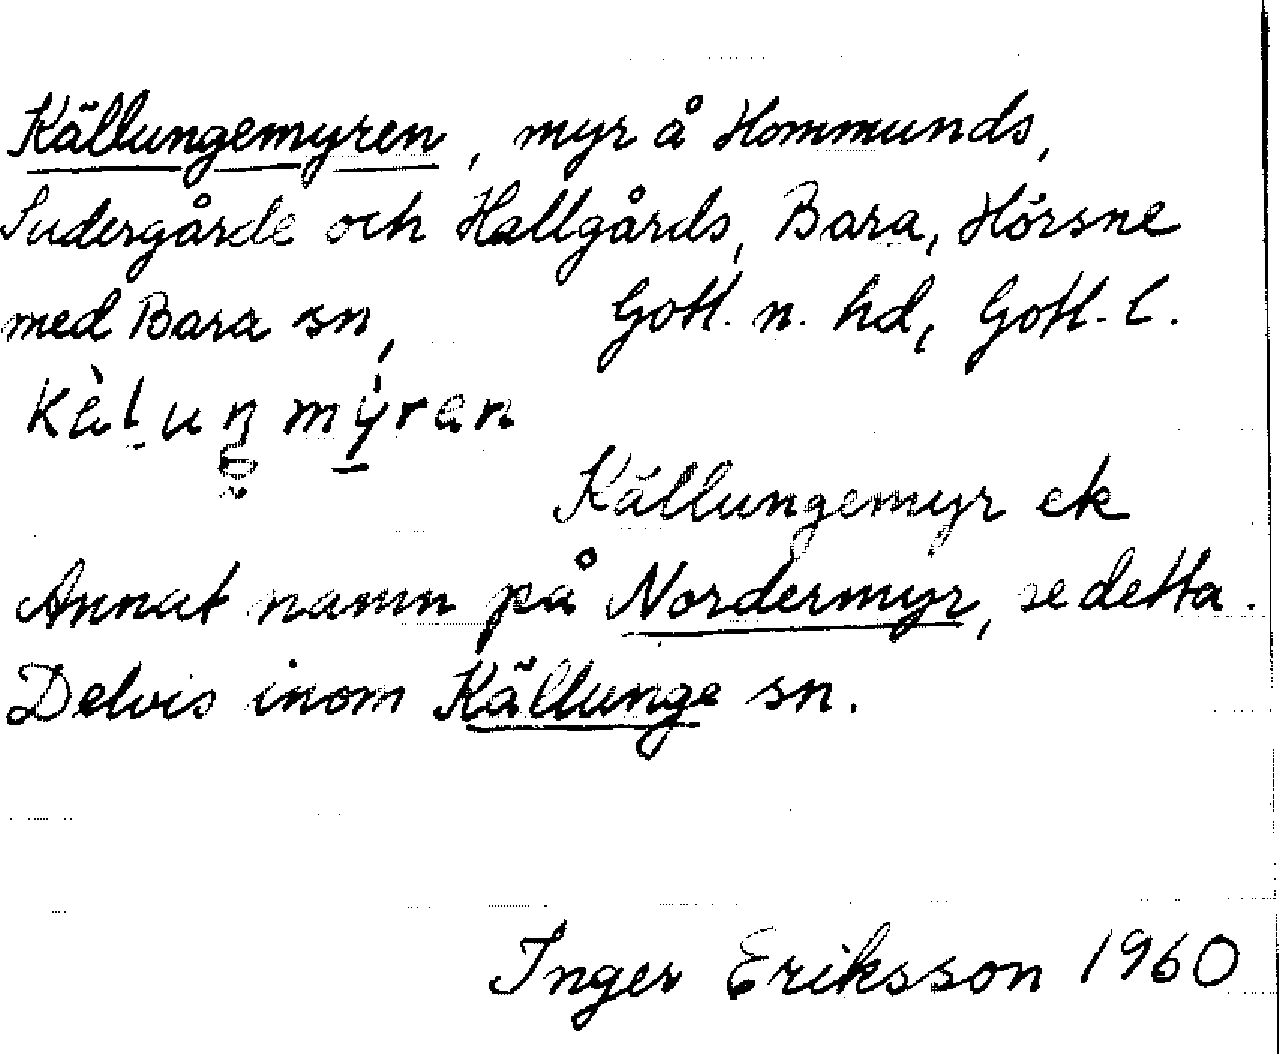 Källungemyren, myr å Hommunds,
Sudergårde och Hallgårds, Bara, Hörsne
med Bara sn, Gotl. n. hd, Gotl. l.
Källungemyr ek
Annat namn på Nordermyr, se detta.
Delvis inom Källunge sn.
Inger Eriksson 1960